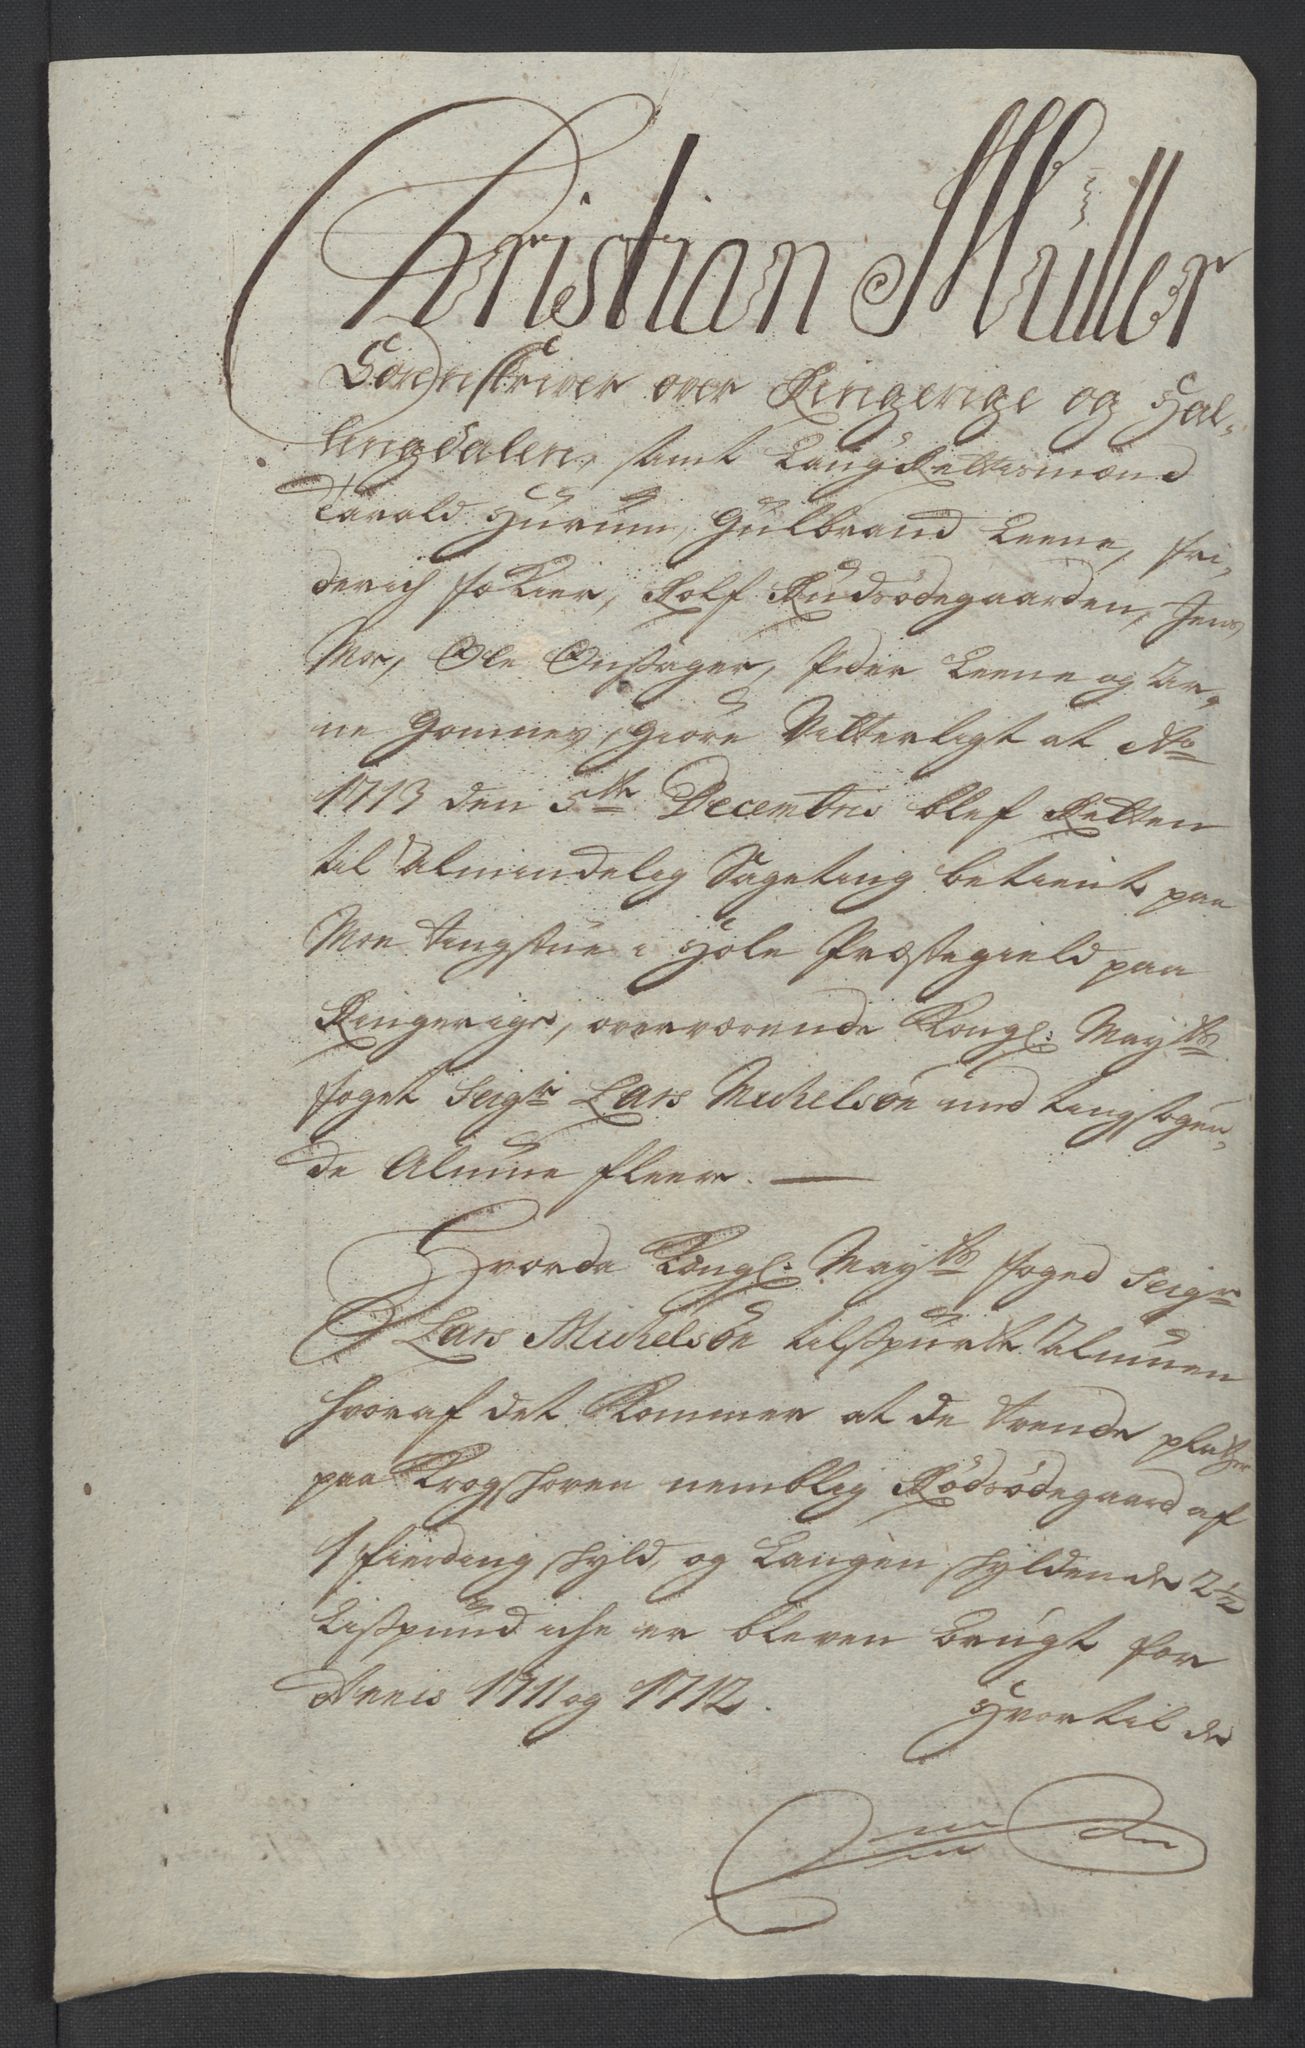 Christian Müller
Sorenskriver over Ringerige og Hal-
lingdalen, samt LaugRettismænd
Harald Hurum, Gulbrand Leene, Fri-
derich Fækier, Rolf Rudsødegaarden, Jens
Moe, Ole Onsager, Peder Leene og Ar-
ne Gommes, Giøre Vitterligt at Ao
1713 den 5te Decembris blef Retten
til Almindelig Sageting betient paa
Moe tingstue i Hole Præstegield paa
Ringerige, overværende Kongl: Mayts
foget Seigr Lars Michelsøn med tingsøgen-
de Almue fleer. —
Hvorda Kongl: Mayts foged Seigr
Lars Michelsøn tilspurte Almuen
hvoraf det Kommer at de trende pladser
paa Krogskoven nemblig Rødsødegaard af
1 fierding skyld, og Langen skyldende 2½
Lispund iche er bleven brugt for
Annis 1711 og 1712. Hvortil de